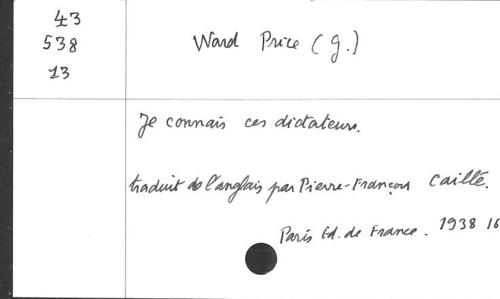 43
538
13
Ward Price (G.)
Je connais ces dictateurs.
traduit de l'anglais par Pierre-François Caillé.
Paris Ed. de France. 1938 16